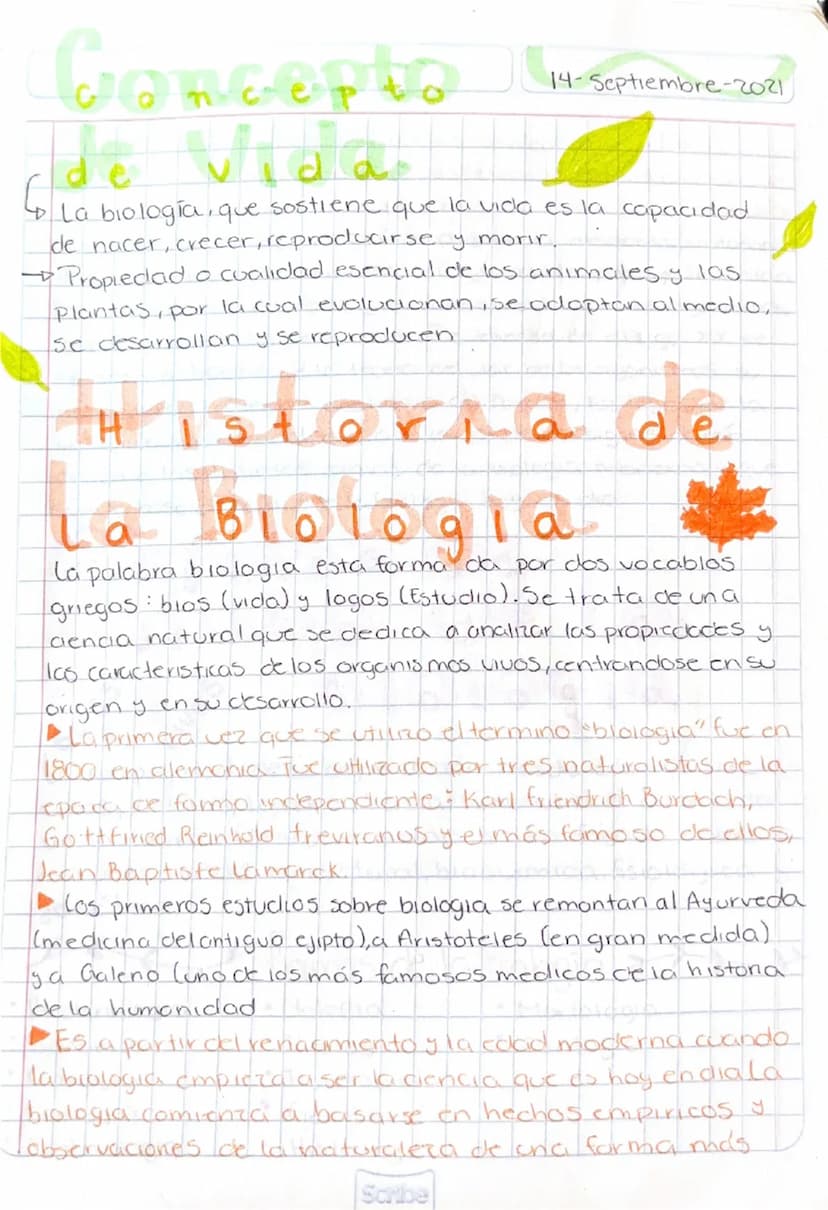 Concepto
14-Septiembre-2021
de Vida
La biología, que sostiene que la vida es la capacidad
de nacer, crecer, reproducirse y morir.
Propiedad o cualidad esencial de los animales y las
plantas, por la cual evolucionan, se adaptan al medio,
se desarrollan y se reproducen
Historia de
La Biologia
La palabra biologia esta forma da por dos vocablos
griegos: bios (vida) y logos (Estudio). Se trata de una
ciencia natural que se dedica a analizar las propiedades y
las caracteristicas de los organismos vivos, centrandose en su
origen y en su desarrollo.
La primera vez que se utilizo el termino "biologia" fue en
1800 en alemania. Fue utilizado por tres naturalistas de la
epoca de forma independiente: Karl friendrich Burdach,
Gottfired Reinhold treviranus y el más famoso de ellos,
Jean Baptiste Lamarck.
Los primeros estudios sobre biologia se remontan al Ayurveda
(medicina del antiguo ejipto), a Aristoteles (en gran medida)
y a Galeno (uno de los más famosos medicos de la historia
de la humanidad
Es a partir del renacimiento y la edad moderna cuando
la biologia empieza a ser la ciencia que es hoy en dia La
biologia comienza a basarse en hechos empiricos y
observaciones de la naturaleza de una forma más
Scribe